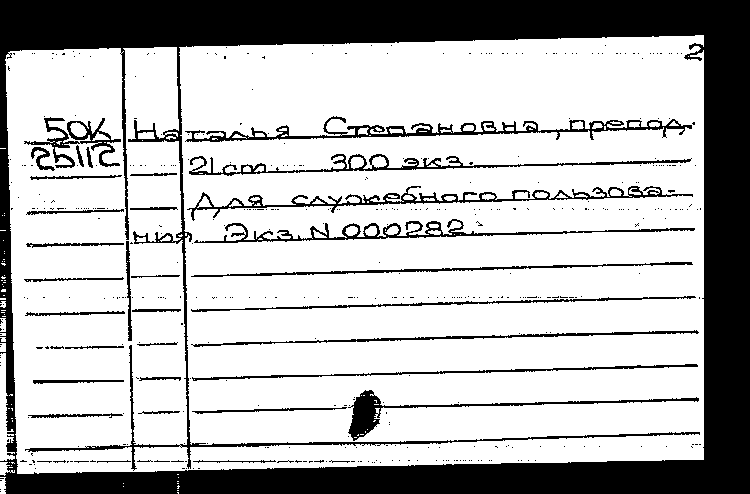 2
50К Наталья Степановна, препод.
25112 21 cm. 300 экз.
Для служебного пользова-
ния. Экз. N 000282.